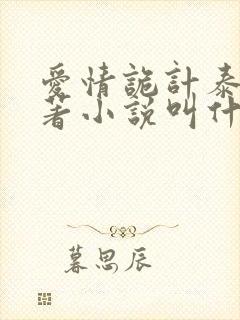 愛情詭計泰
著小説叫什
暮思辰